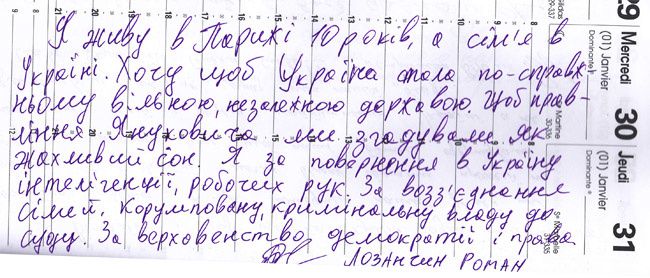 Я живу в Парижі 10 років, а сім'я в
Україні. Хочу щоб Україна стала по-справж-
ньому вільною, незалежною державою. Щоб прав-
ління Януковича ми згадували як
жахливий сон. Я за повернення в Україну
інтелігенції, робочих рук. За возз'єднання
сімей. Корумповану, кримінальну владу до
суду. За верховенство демократії і права
Лозанчин Роман
29
Mercredi
(01) Janvier
Dominante
30
Jeudi
(01) Janvier
Dominante
31